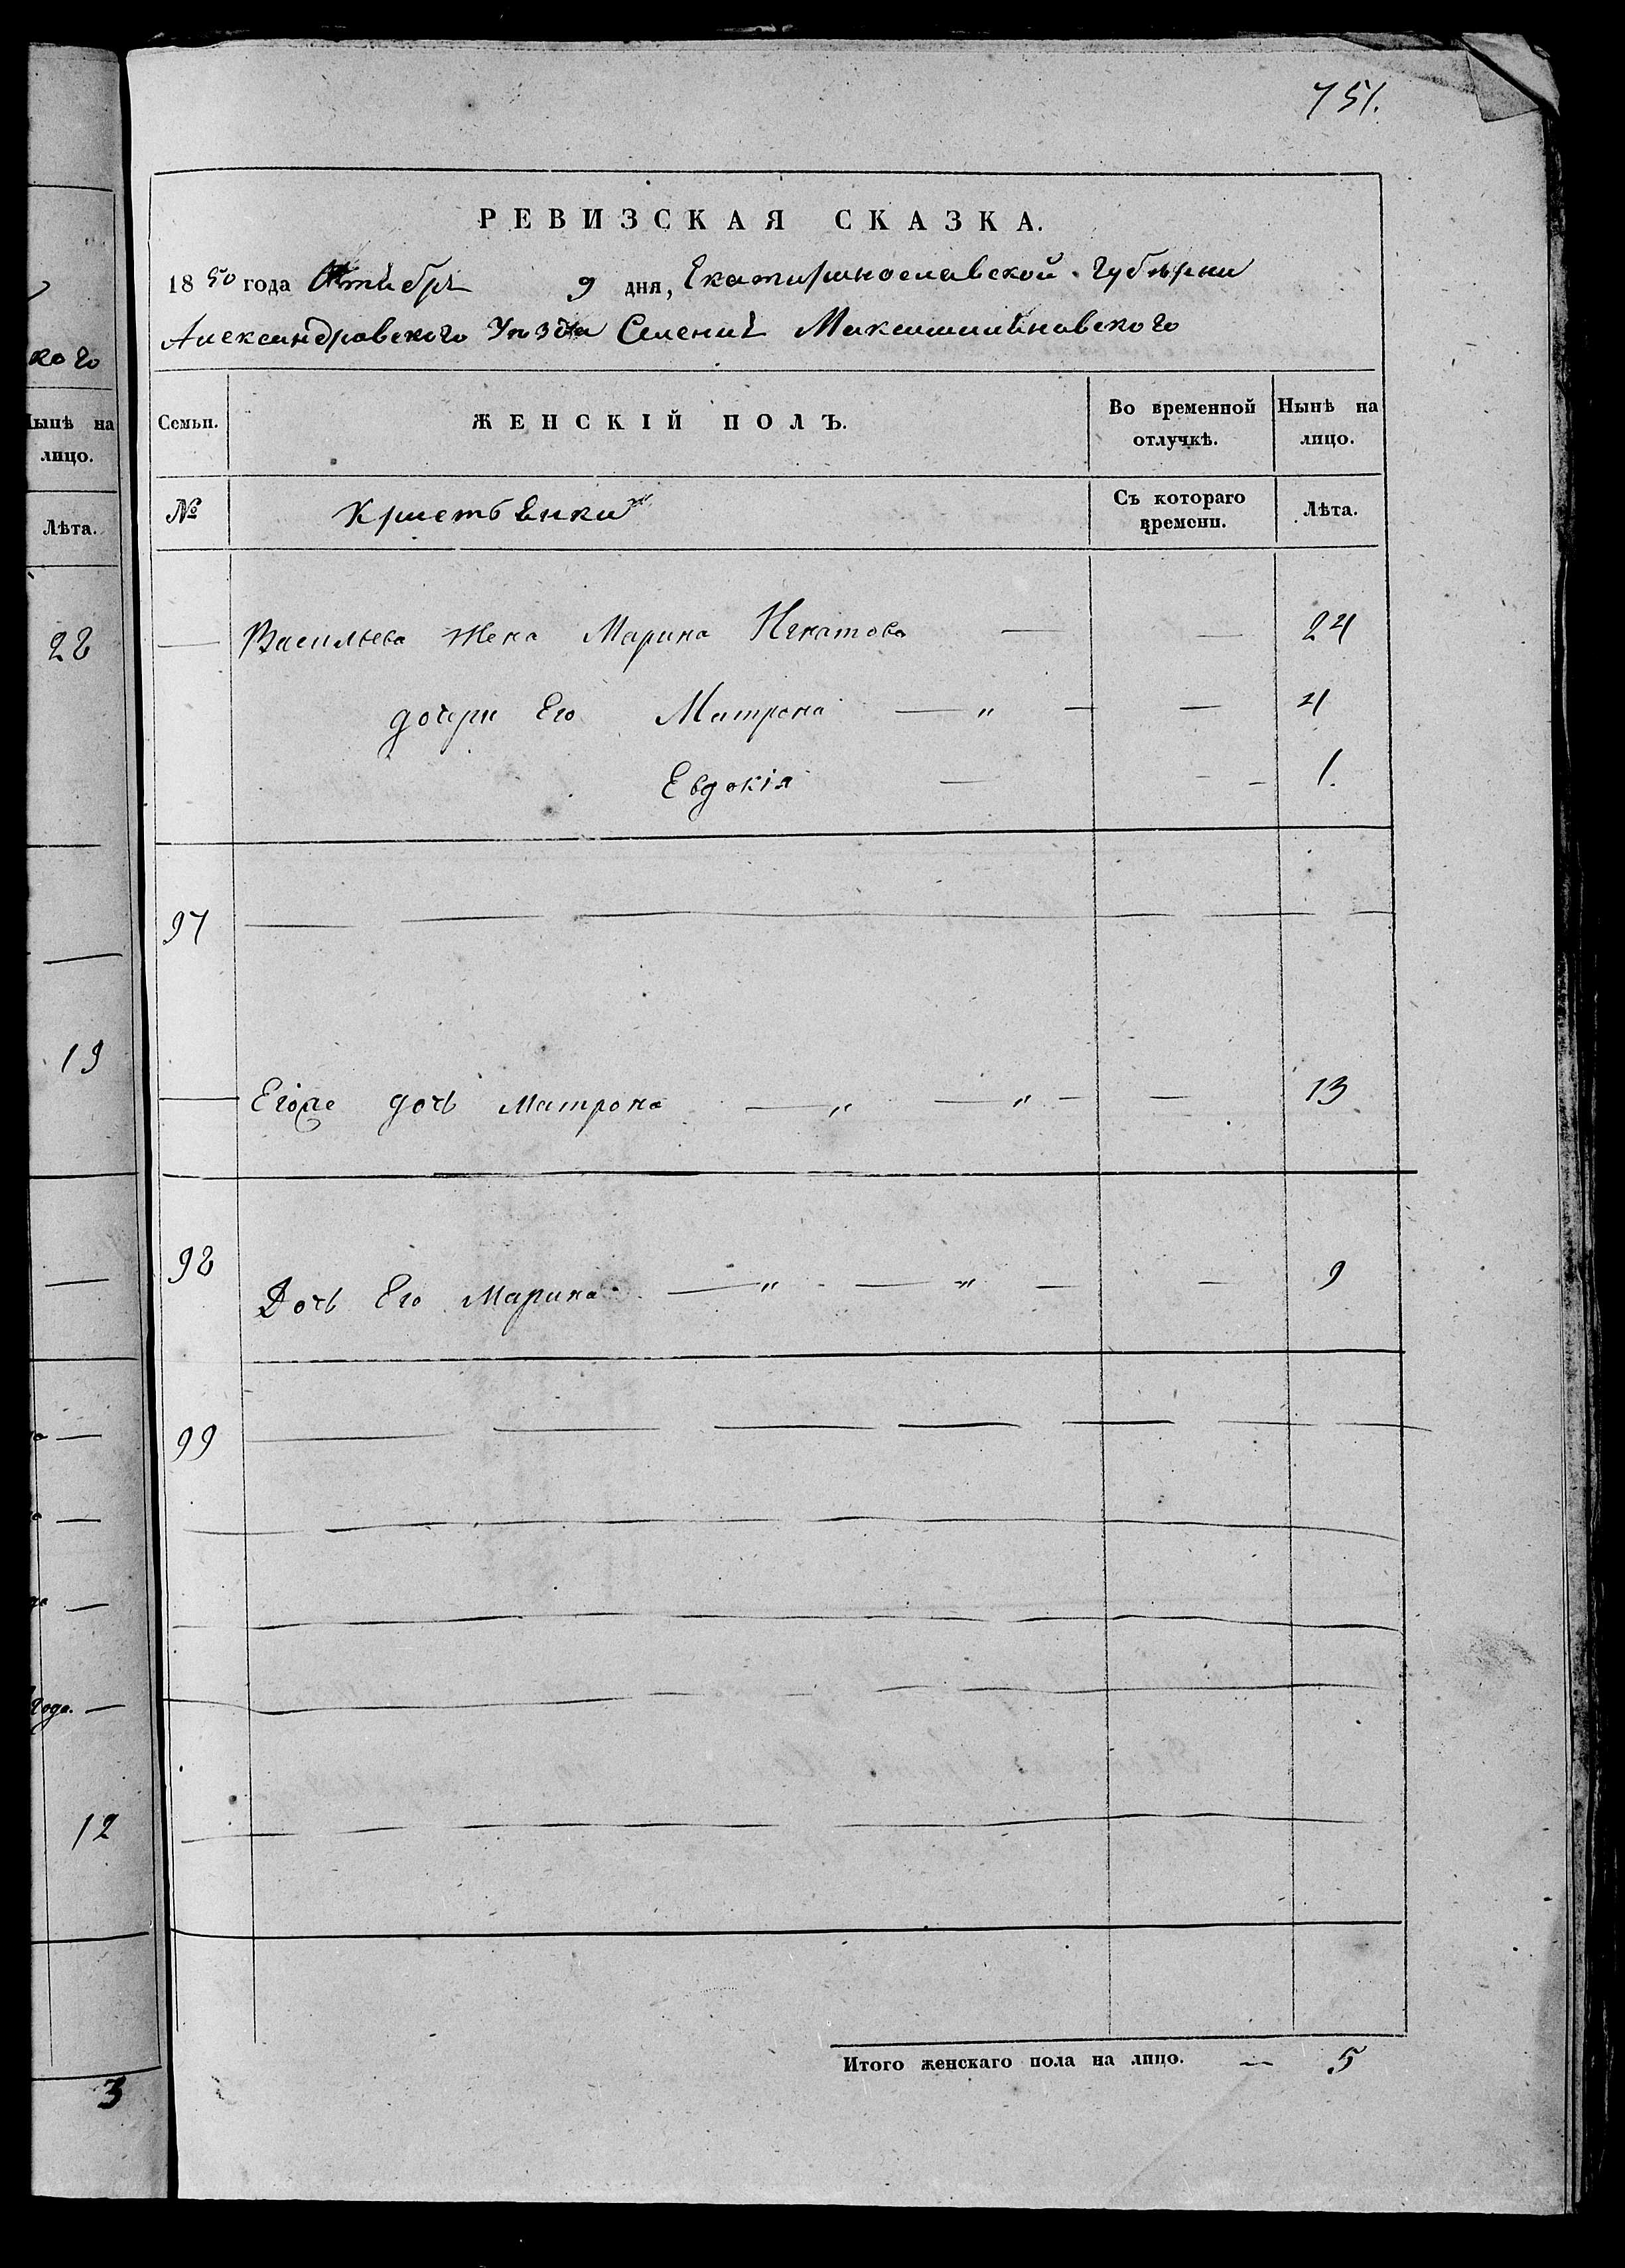 751.
РЕВИЗСКАЯ СКАЗКА.
1850 года Октября 9 дня, Екатеринославской Губернии
Александровского Уезда Селения Максимилиановского
кого
Нынѣ на лицо.
Семьи.
ЖЕНСКІЙ ПОЛЪ.
Во временной отлучкѣ.
Нынѣ на лицо.
Лѣта.
№
Крестьянки
Съ котораго времени.
Лѣта.
28
Васильева жена Марина Игнатова — — 24
дочери Его Матрона — " — — 4
Евдокія — — 1.
97
19
Егора дочь Матрона — " — " — — 13
98
Дочь Его Марина — " — " — — 9
99
года. —
12
Итого женскаго пола на лицо. — 5
3